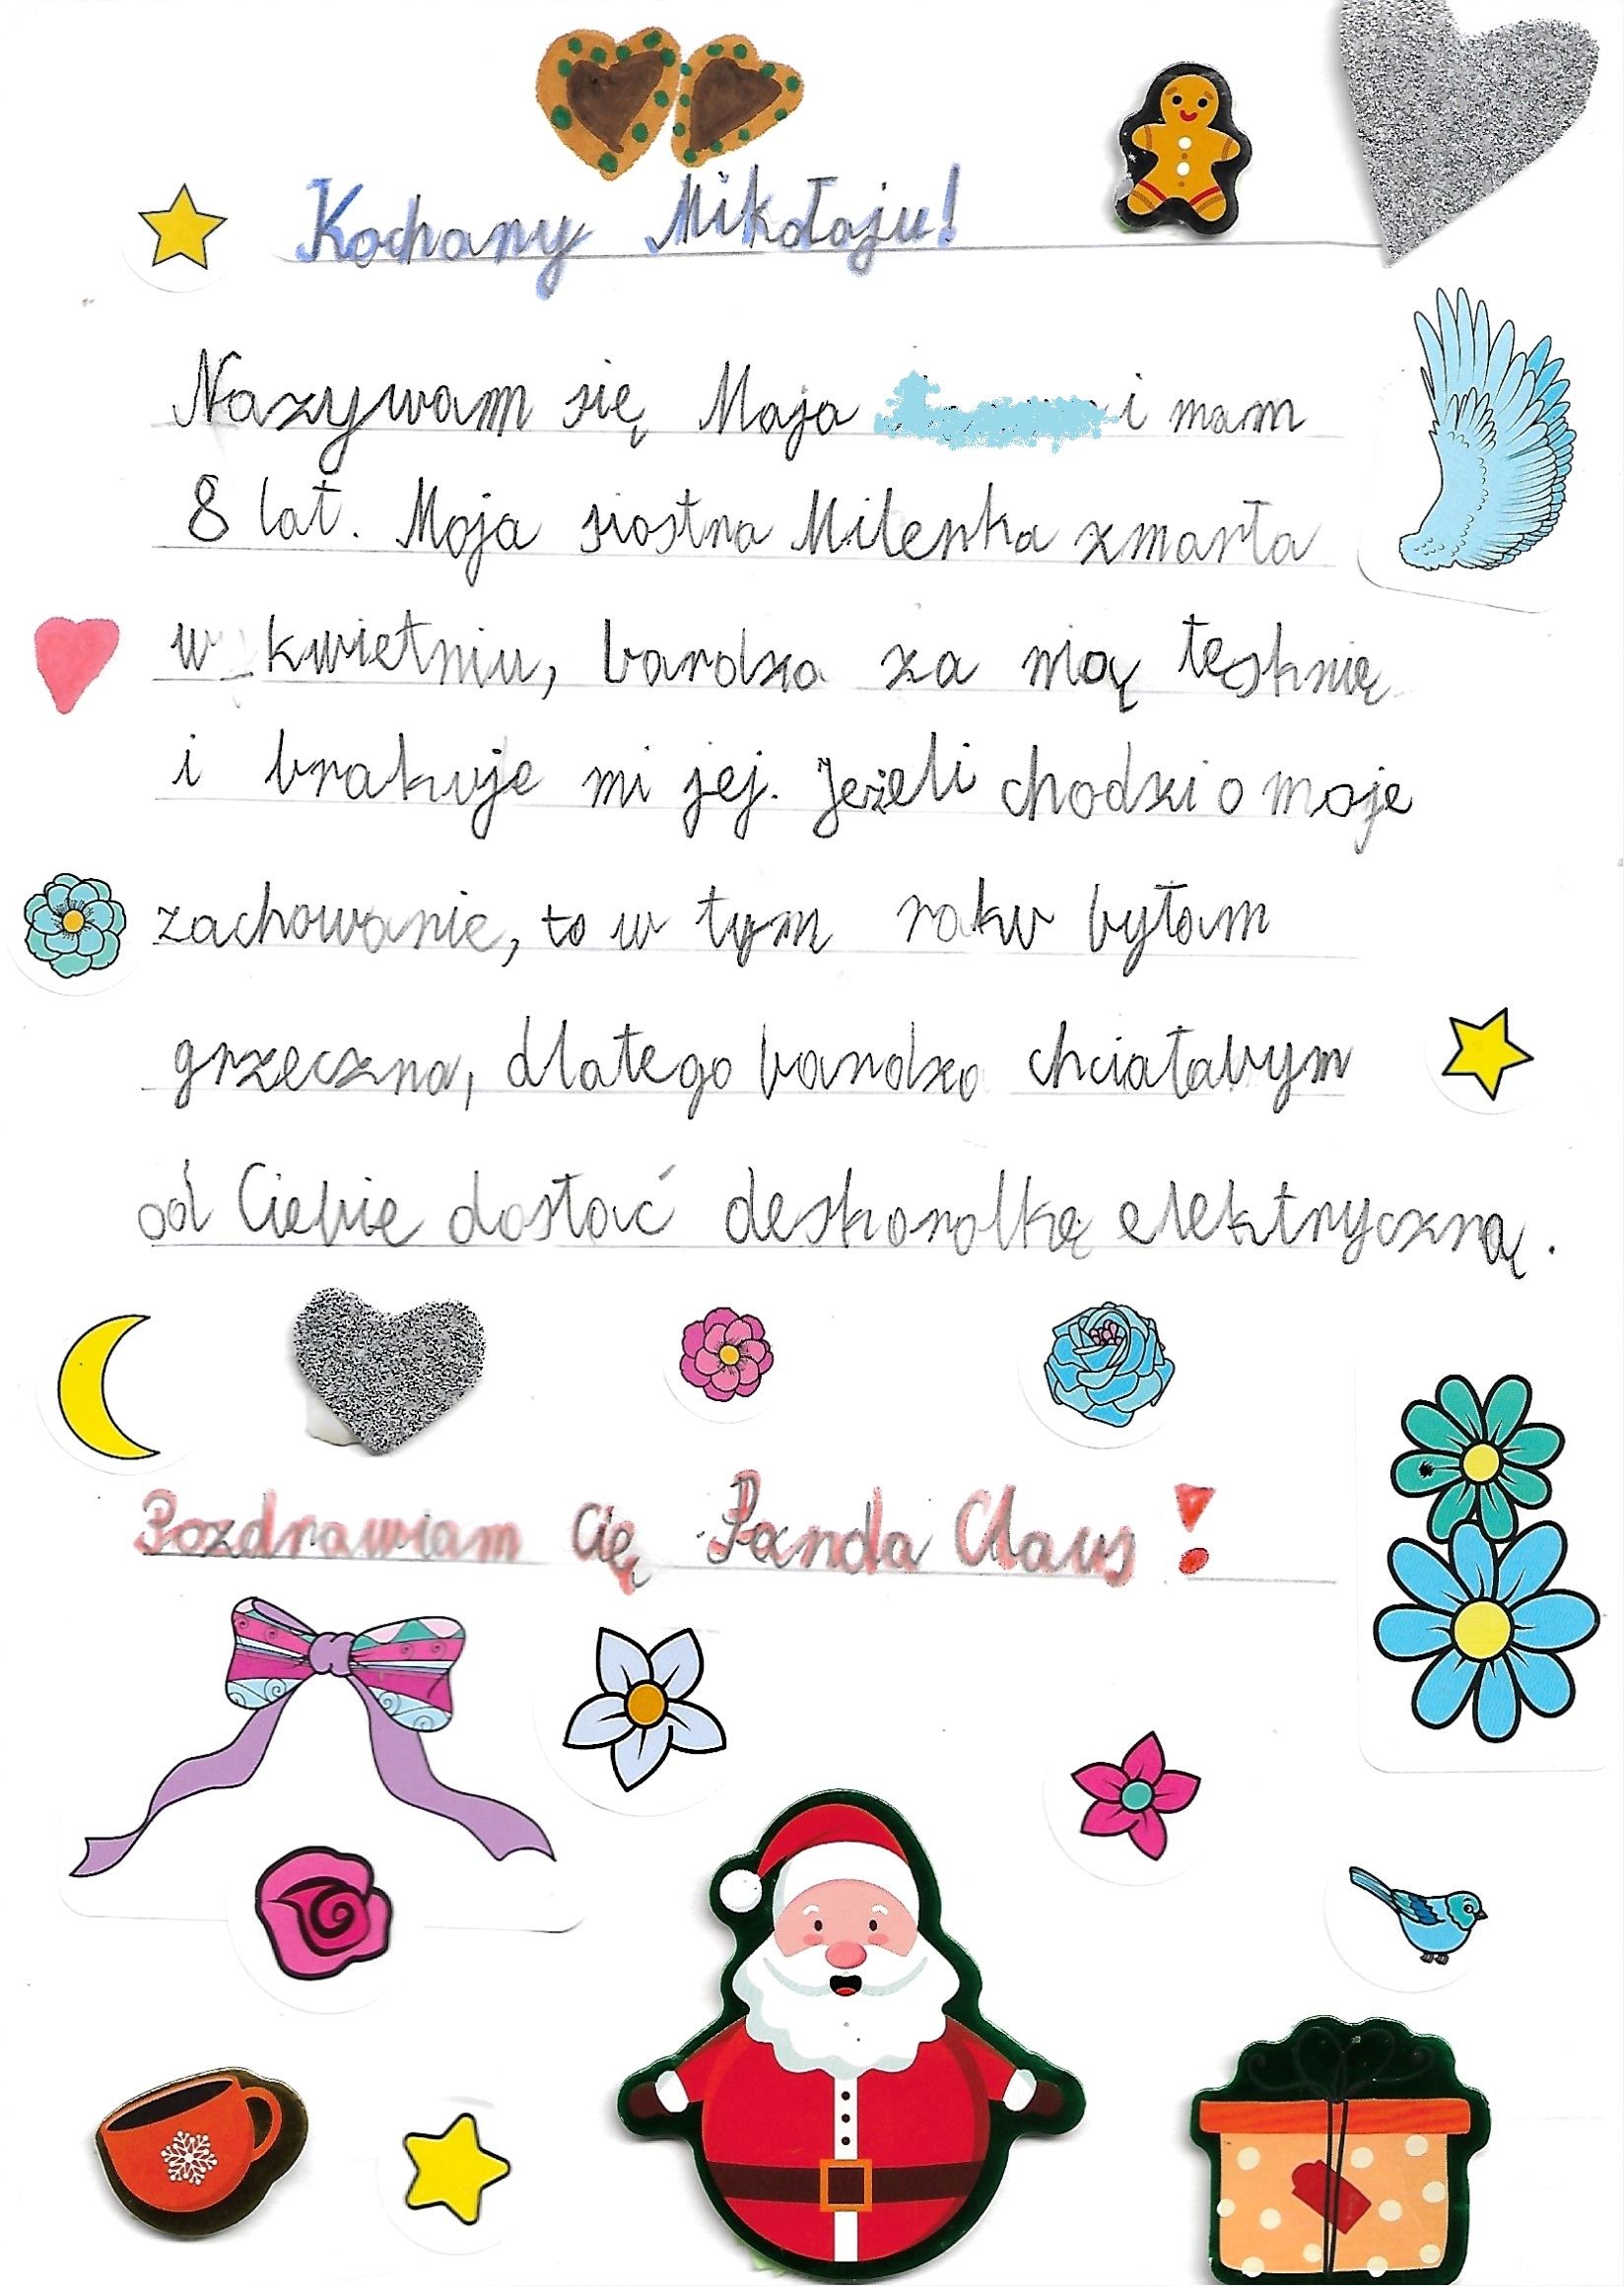 Kochany Mikołaju!
Nazywam się Maja i mam
8 lat. Moja siostra Milenka zmarła
w kwietniu, bardzo za nią tęsknię
i brakuje mi jej. Jeżeli chodzi o moje
zachowanie, to w tym roku byłam
grzeczna, dlatego bardzo chciałabym
od Ciebie dostać deskorolkę elektryczną.
Pozdrawiam Cię Panda Claus!